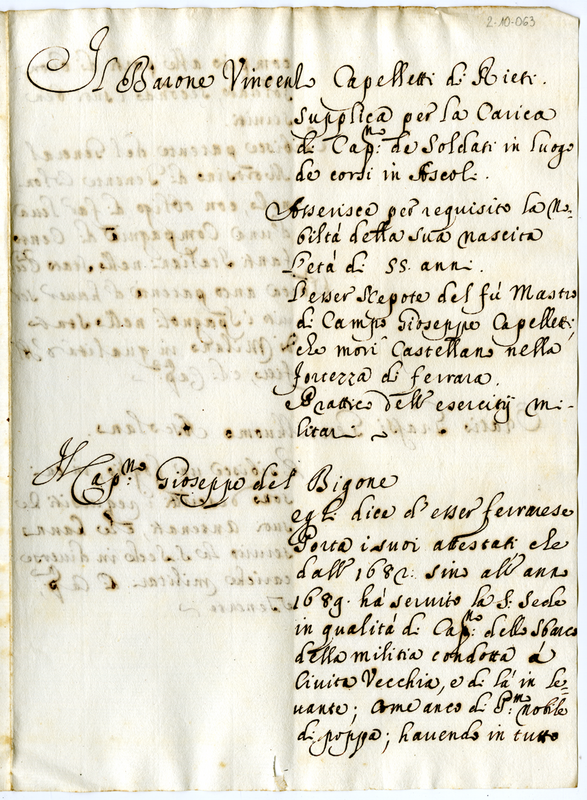 2-10-063
Il Barone Vincent Capelletti di Rieti.
supplica per la Carica
di Cap.no de Soldati in luogo
de corsi in Ascoli.
Asserisce per requisito la No=
biltà della sua nascita
L'età di 55. anni.
L'esser Nepote del fù Mastro
di Campo Gioseppe Capelletti,
che morì Castellano nella
Fortezza di ferrara.
Prattico dell'esercitij mi-
litari
Il Cap.no Gioseppe del Bigone
egli dice d'esser ferrarese
Porta i suoi attestati, che
dall' 1682. sino all'anno
1689. hà servito la S. Sede
in qualità di Cap.no dello Sbarco
della militia condotta à
Civita Vecchia, e di là in le=
vante; come anco di P.m nobile
di poppa; havendo in tutto